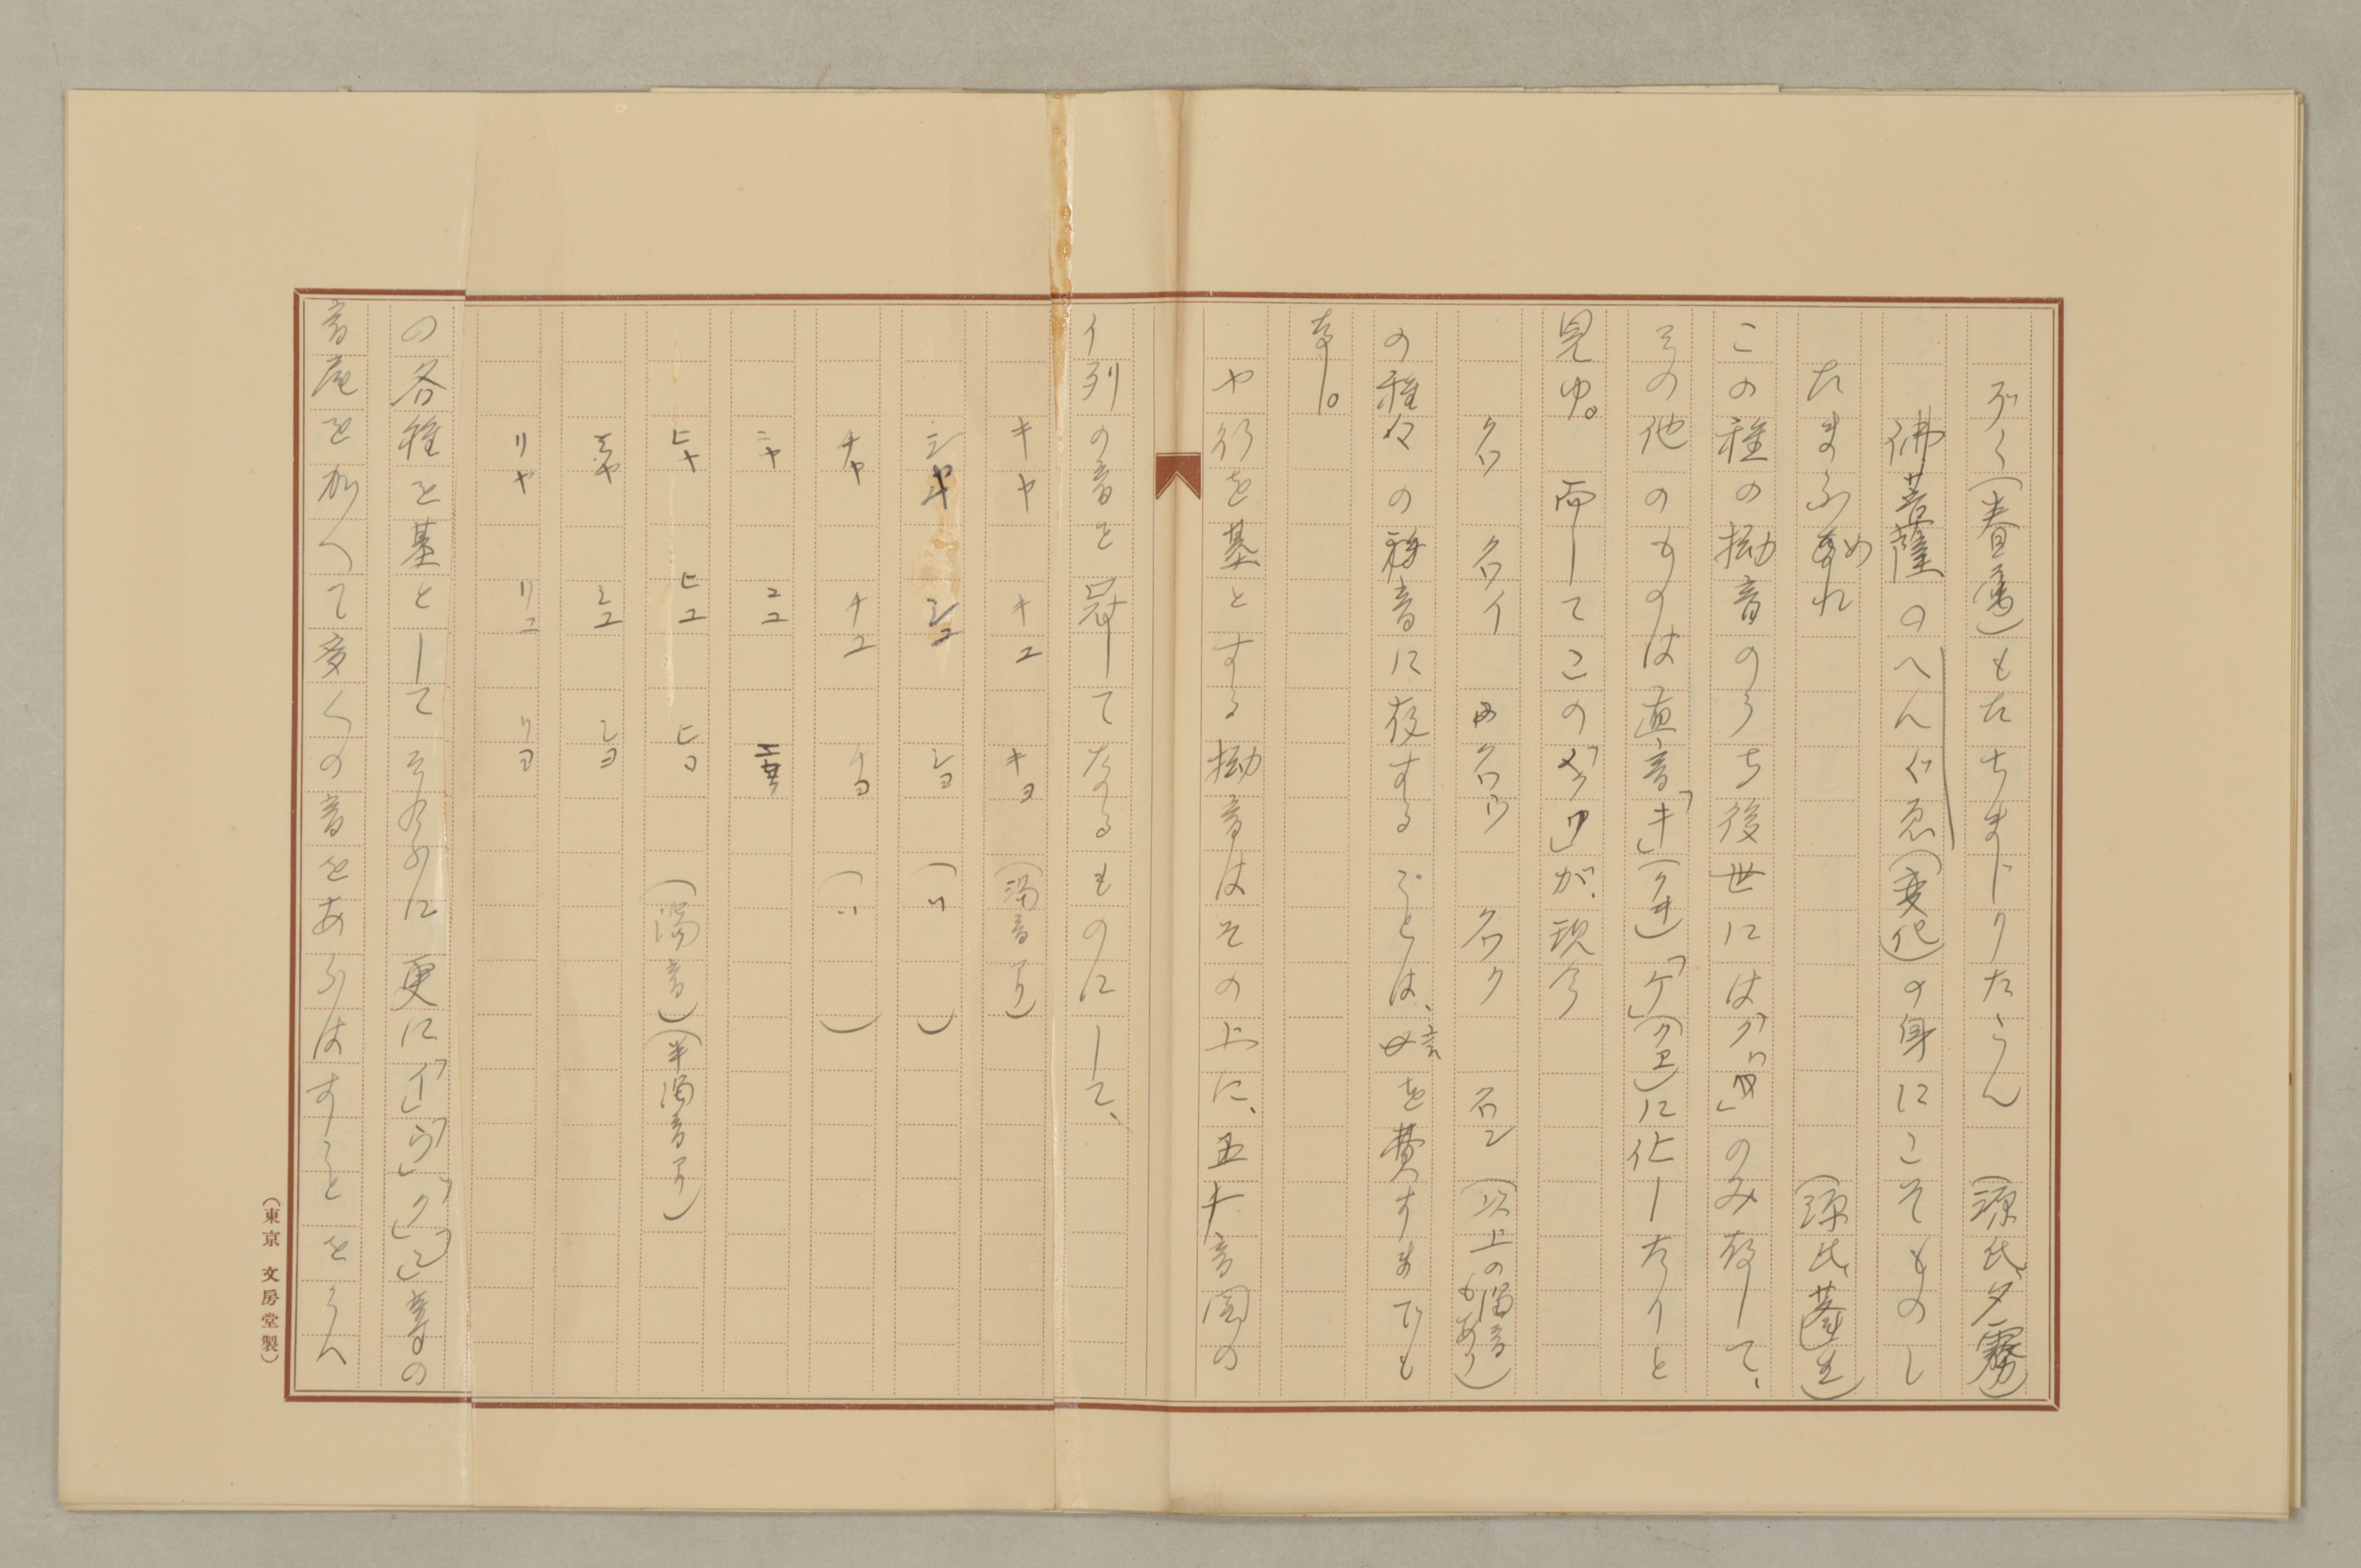 がく(春鶯)もたちまじりたらん (源氏、夕霧)
佛菩薩のへんぐゑ(変化)の身にこそものし
たまふめれ (源氏、蓬生)
この種の拗音のうち後世には「クヮ」のみ存して、
その他のものは直音「キ」(クヰ)「ケ」(クヱ)に化したりと
見ゆ。而してこの「クワ」が、現今
クワ クワイ クワウ クワク クワン (以上の濁音もあり)
の種々の拗音に存することは、贅言を費すまでも
なし。
ヤ行を基とする拗音はその上に、五十音図の
イ列の音を冠してなるものにして、
キヤ キユ キヨ (濁音アリ)
シヤ シユ シヨ (〃)
チヤ チユ チヨ (〃)
ニヤ ニユ ニヨ
ヒヤ ヒユ ヒヨ (濁音)(半濁音アリ)
ミヤ ミユ ミヨ
リヤ リユ リヨ
の各種を基としてそれらに更に「イ」「ウ」「ク」「ン」等の
音尾を加へて多くの音をあらはすことをうべ
(東京 文房堂製)